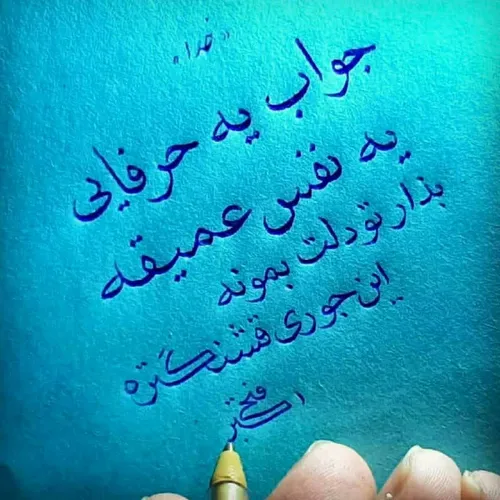 «خدا»
جواب یه حرفایی
یه نفس عمیقه
بذار تو دلت بمونه
این جوری قشنگتره